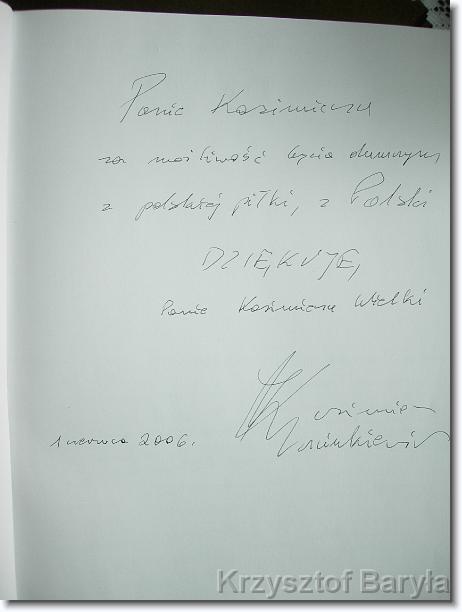 Panie Kazimierzu
za możliwość bycia dumnym
z polskiej piłki, z Polski
DZIĘKUJĘ,
Panie Kazimierzu Wielki
Kazimierz
Marcinkiewicz
1 czerwca 2006.
Krzysztof Baryła